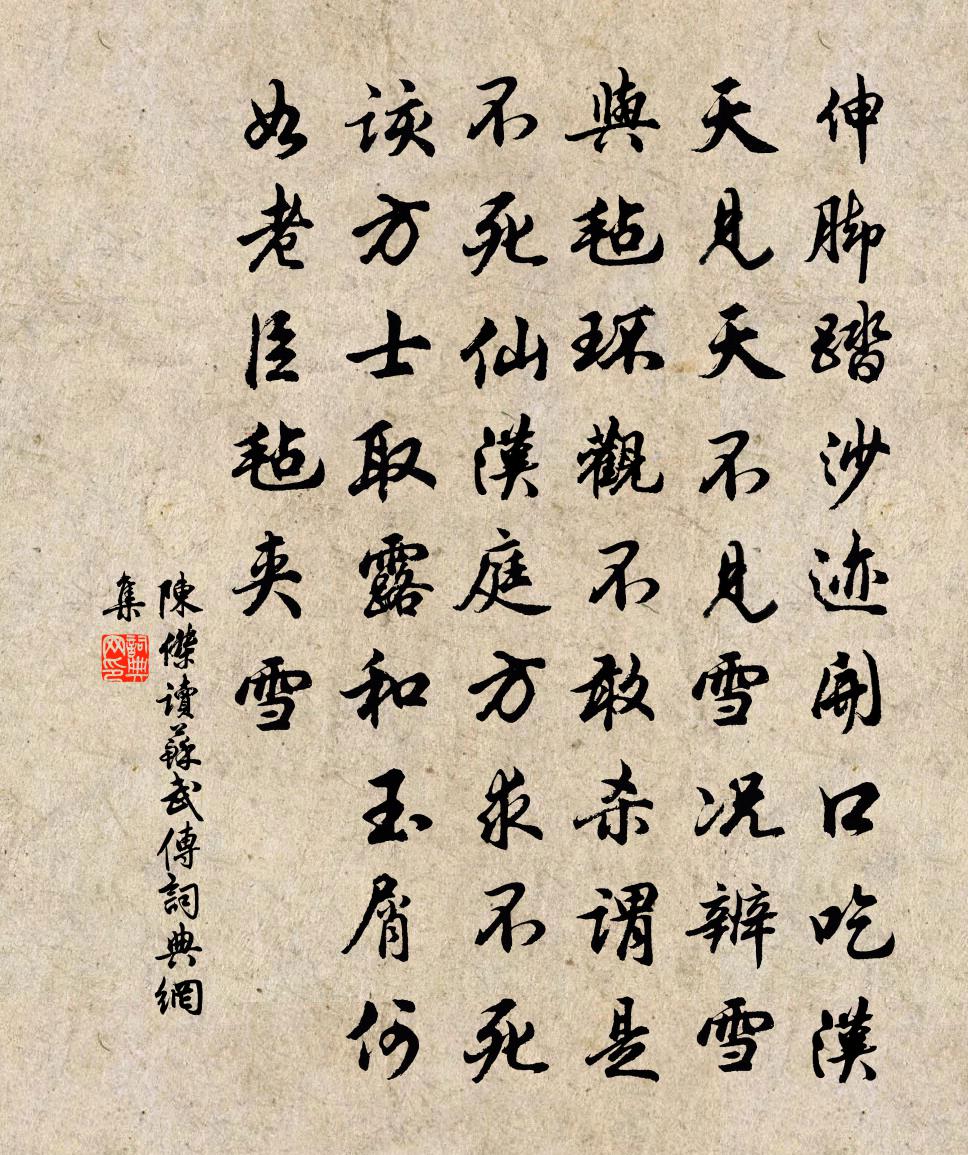 伸脚踏沙迹開口吃漢
天見天不見雪况辨雪
與毡环觀不敢杀謂是
不死仙漢庭方求不死
該方士取露和玉屑何
如老臣毡夹雪
陳傑讀蘇武傳詞典網
集
詞典网印